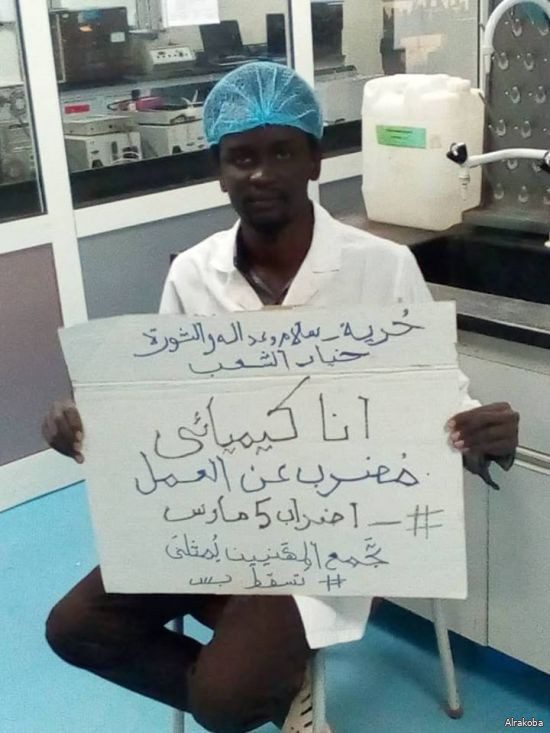 حُرية - سلام وعدالة والثورة
خيار الشعب
انا كيميائي
مُضرب عن العمل
#_اضراب 5 مارس
تجَّمع المهَنيين يُمثلنى
# تسقط بس
Alrakoba